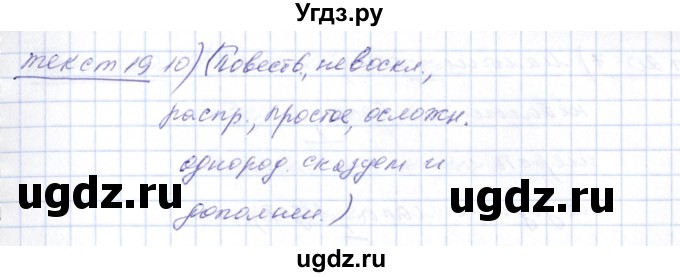 Угдз.ру
текст 19 10) (Повеств., невоскл.,
распр., простое, осложн.
однород. сказуем и
дополнен.)
ugdz.ru ugdz.ru ugdz.ru
ugdz.ru ugdz.ru ugdz.ru